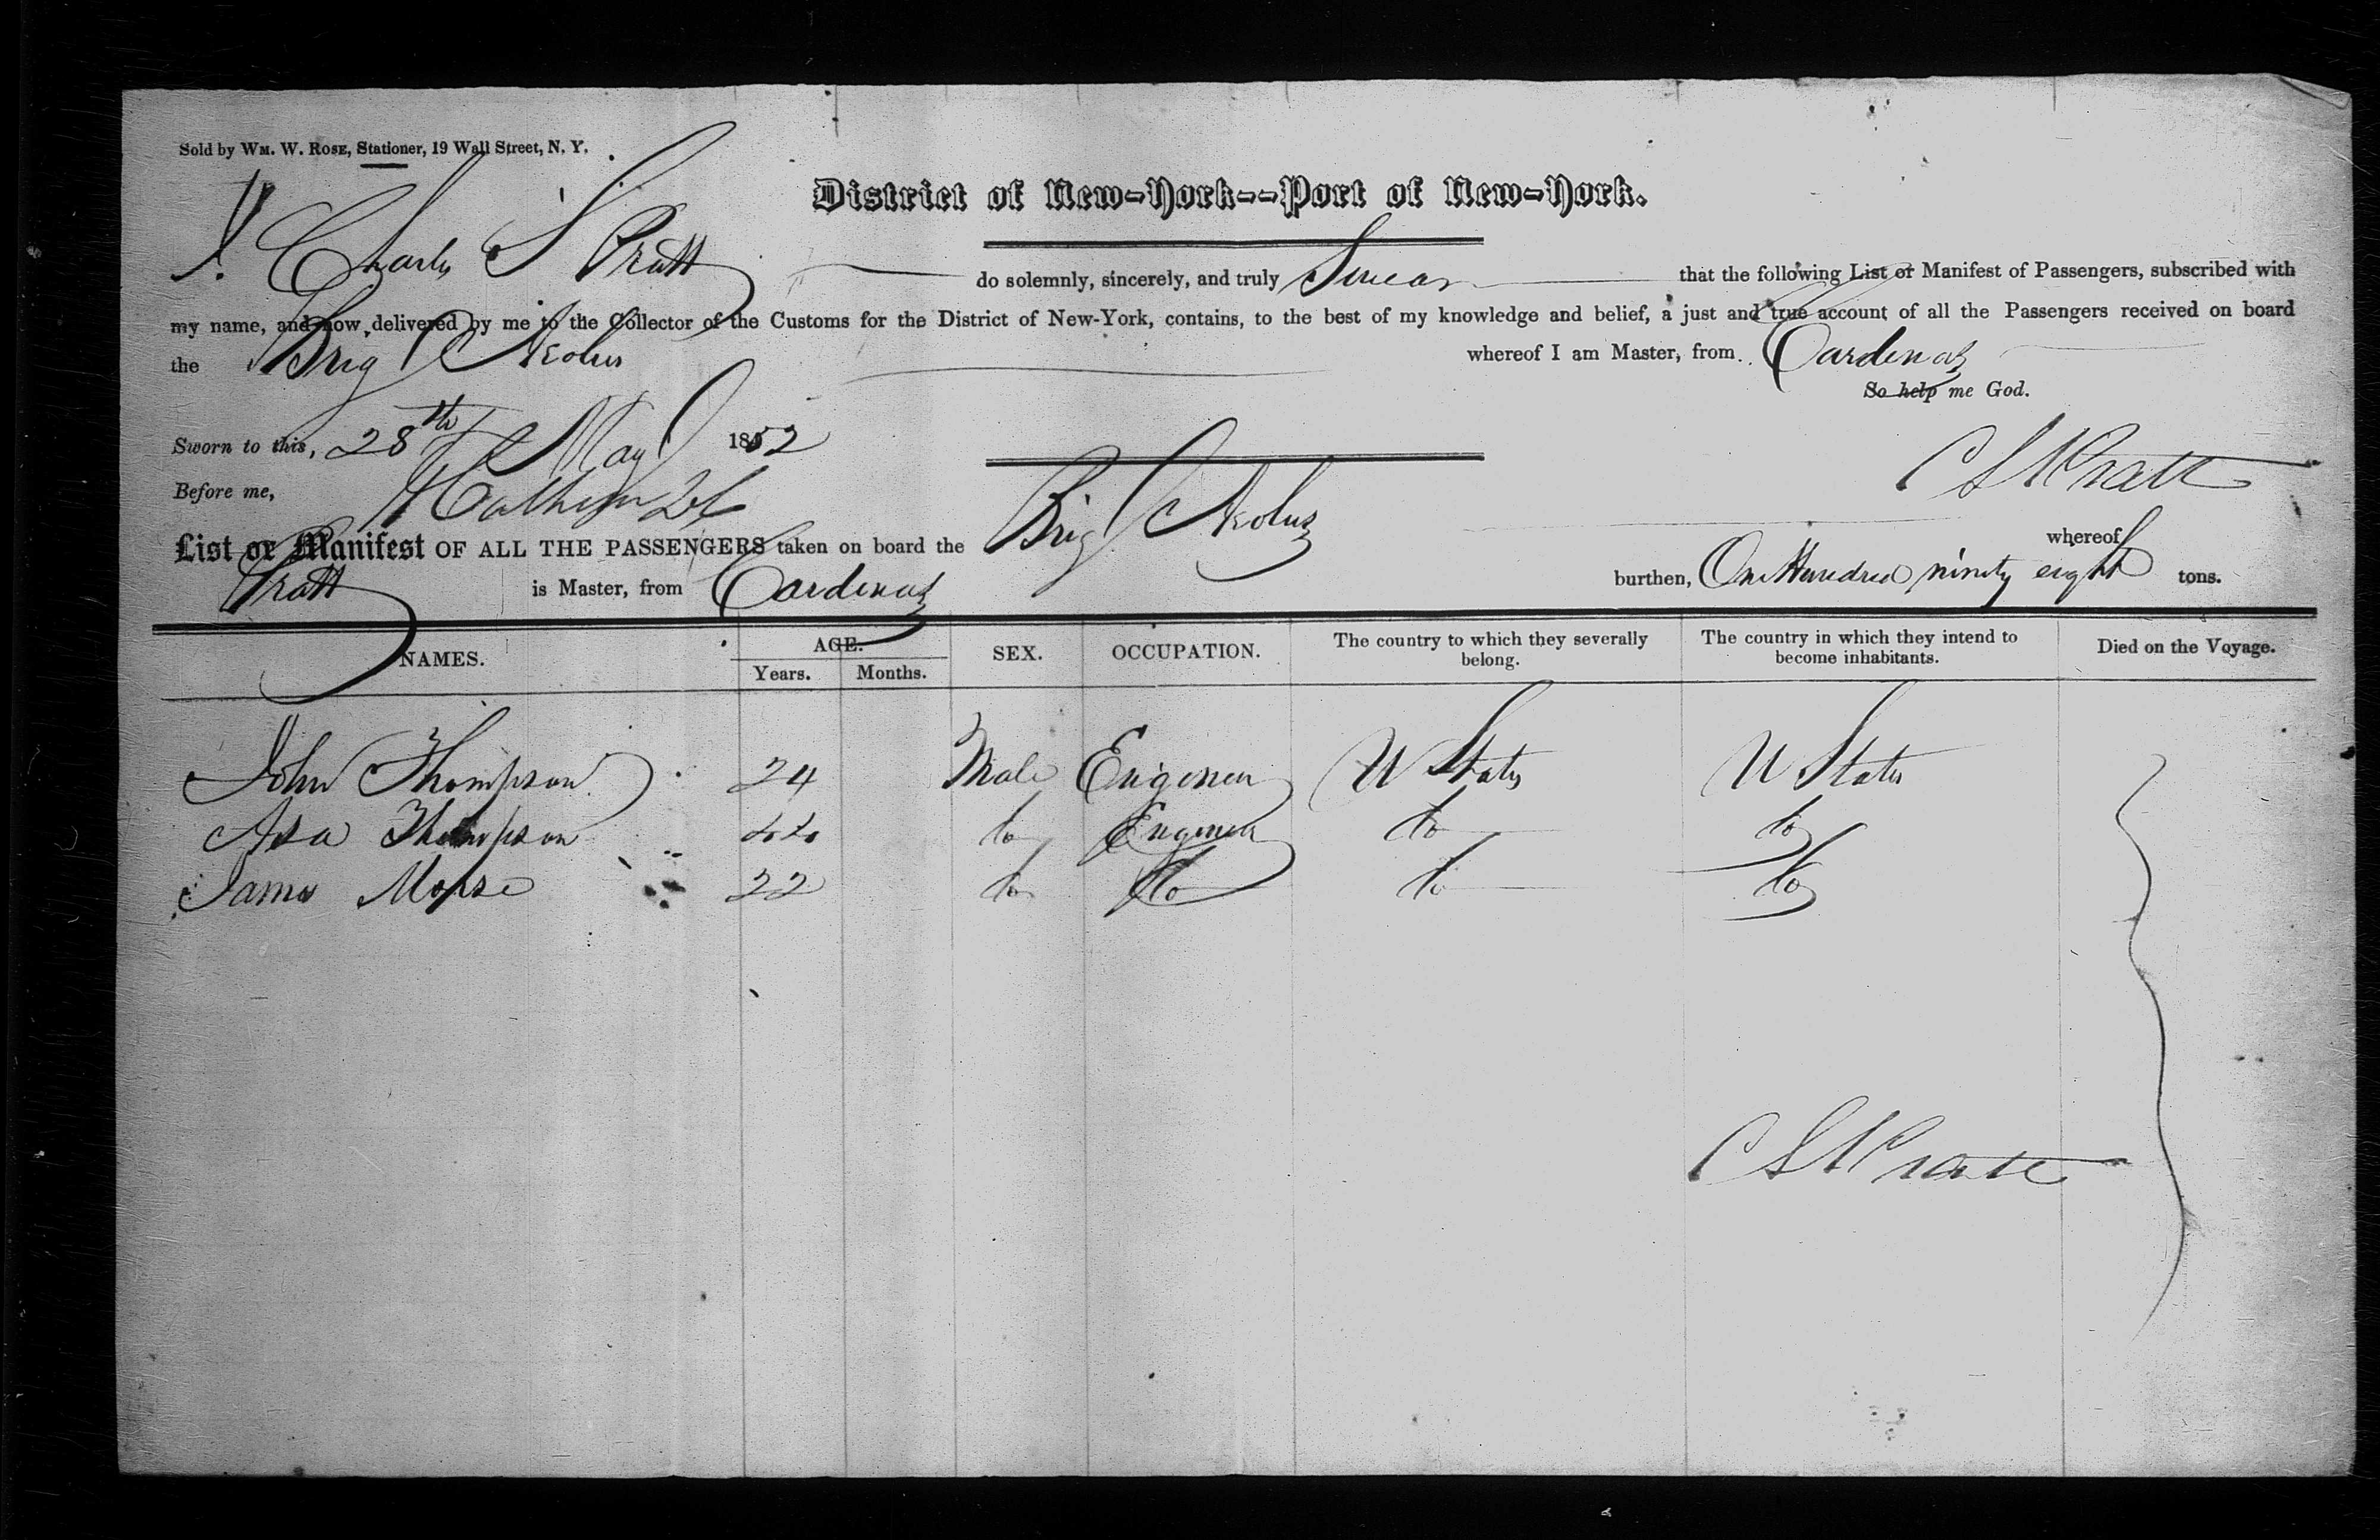 Sold by WM. W. ROSE, Stationer, 19 Wall Street, N. Y.
District of New-York--Port of New-York.
I, Charles S Pratt do solemnly, sincerely, and truly Swear that the following List or Manifest of Passengers, subscribed with
my name, and now delivered by me to the Collector of the Customs for the District of New-York, contains, to the best of my knowledge and belief, a just and true account of all the Passengers received on board
the Brig Aeolus whereof I am Master, from Cardenas
So help me God.
Sworn to this, 28th May 1852
C S Pratt
Before me,
List or Manifest OF ALL THE PASSENGERS taken on board the Brig Aeolus whereof
Pratt is Master, from Cardenas burthen, One Hundred ninety eight tons.
NAMES. AGE. Years. Months. SEX. OCCUPATION. The country to which they severally belong. The country in which they intend to become inhabitants. Died on the Voyage.
John Thompson 24 Male Engineer U States U States
Asa Thompson 44 do Engineer do do
James Morse 22 do do do do
C S Pratt